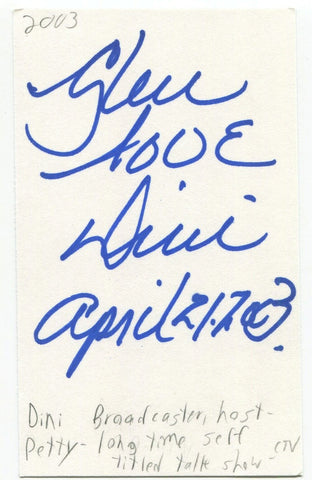 2003
Glen
LOVE
Dini
April 21. 2003.
Dini Broadcaster, host-
Petty- long time self
titled talk show - CTV